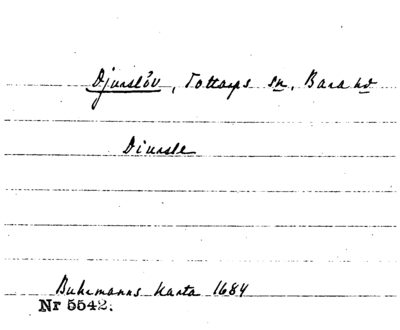 Djurslöv, Tottarps sn, Bara hd
Diursle
Buhrmanns karta 1684
Nr 5542.